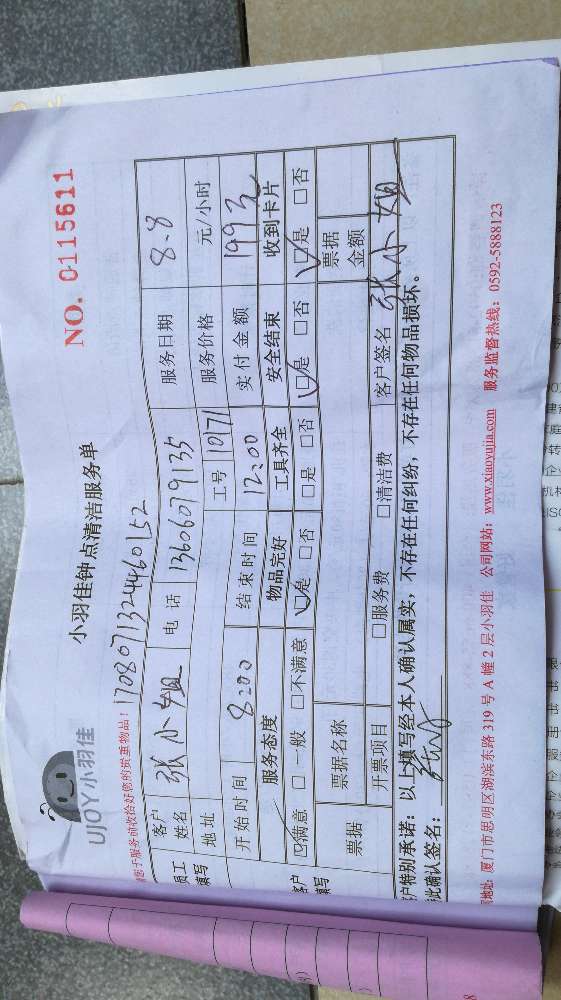 UJOY小羽佳
小羽佳钟点清洁服务单
NO. 0115611
您于服务前收拾好您的贵重物品！1708071324460152
员工填写
客户姓名 张小姐 电话 13606079135 服务日期 8.8
地址 工号 10171 服务价格 元/小时
开始时间 8:00 结束时间 12:00 实付金额 199元
客户填写
服务态度 物品完好 工具齐全 安全结束 收到卡片
☑满意 □一般 □不满意 ☑是 □否 □是 □否 ☑是 □否 ☑是 □否
票据 票据名称 票据金额
开票项目 □服务费 □清洁费 客户签名 张小姐
客户特别承诺：以上填写经本人确认属实，不存在任何纠纷，不存在任何物品损坏。
此确认签名：
地址：厦门市思明区湖滨东路 319 号 A 幢 2 层小羽佳 公司网站：www.xiaoyujia.com 服务监督热线：0592-5888123